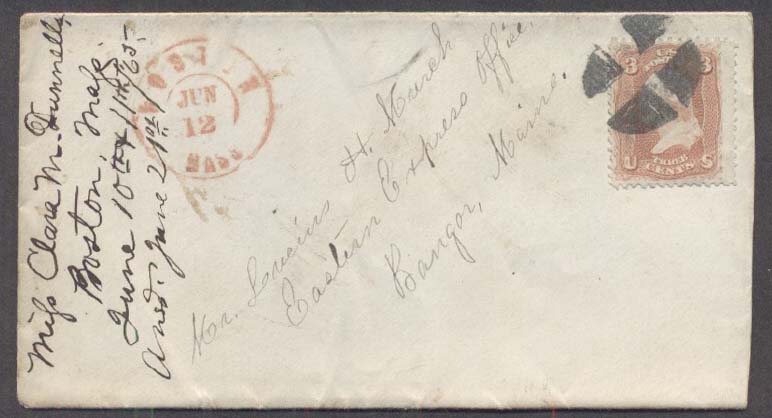 Miss Clara M. Dunnells,
Boston, Mass.
June 10th & 11th/65.
Answd. June 21st/
BOSTON
JUN
12
MASS
Mr. Lucius H. March
Eastern Express Office,
Bangor, Maine.
3 U.S. POSTAGE 3
U THREE CENTS S